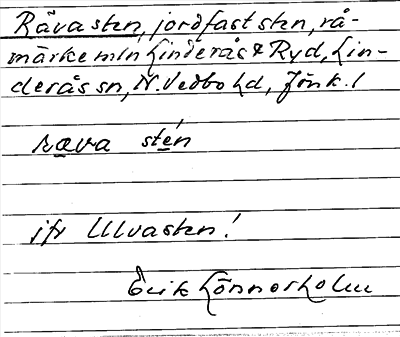 Rävasten, jordfast sten, rå-
märke mln Linderås & Ryd, Lin-
derås sn, N. Vedbo hd, Jönk. l
ræva stén
jfr Ulvasten!
Erik Lönnerholm